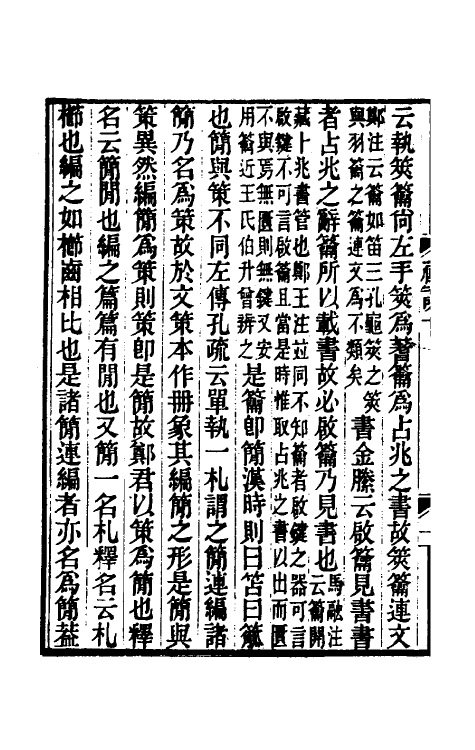 云執筴籥尙左手筴爲蓍籥爲占兆之書故筴籥連文
鄭注云籥如笛三孔龜筴之筴
與羽籥之籥連文爲不類矣
書金縢云啟籥見書書
者占兆之辭籥所以載書故必啟籥乃見書也
馬融注
云籥開
藏卜兆書管也鄭王注竝同不知籥者啟鍵之器可言
啟鍵不可言啟籥且當是時惟取占兆之書以出而匱
不與焉無匱則無鍵又安
用籥近王氏伯升曾辨之
是籥卽簡漢時則曰笘曰籥
也簡與策不同左傳孔疏云單執一札謂之簡連編諸
簡乃名爲策故於文策本作冊象其編簡之形是簡與
策異然編簡爲策則策卽是簡故鄭君以策爲簡也釋
名云簡閒也編之篇篇有閒也又簡一名札釋名云札
櫛也編之如櫛齒相比也是諸簡連編者亦名爲簡葢